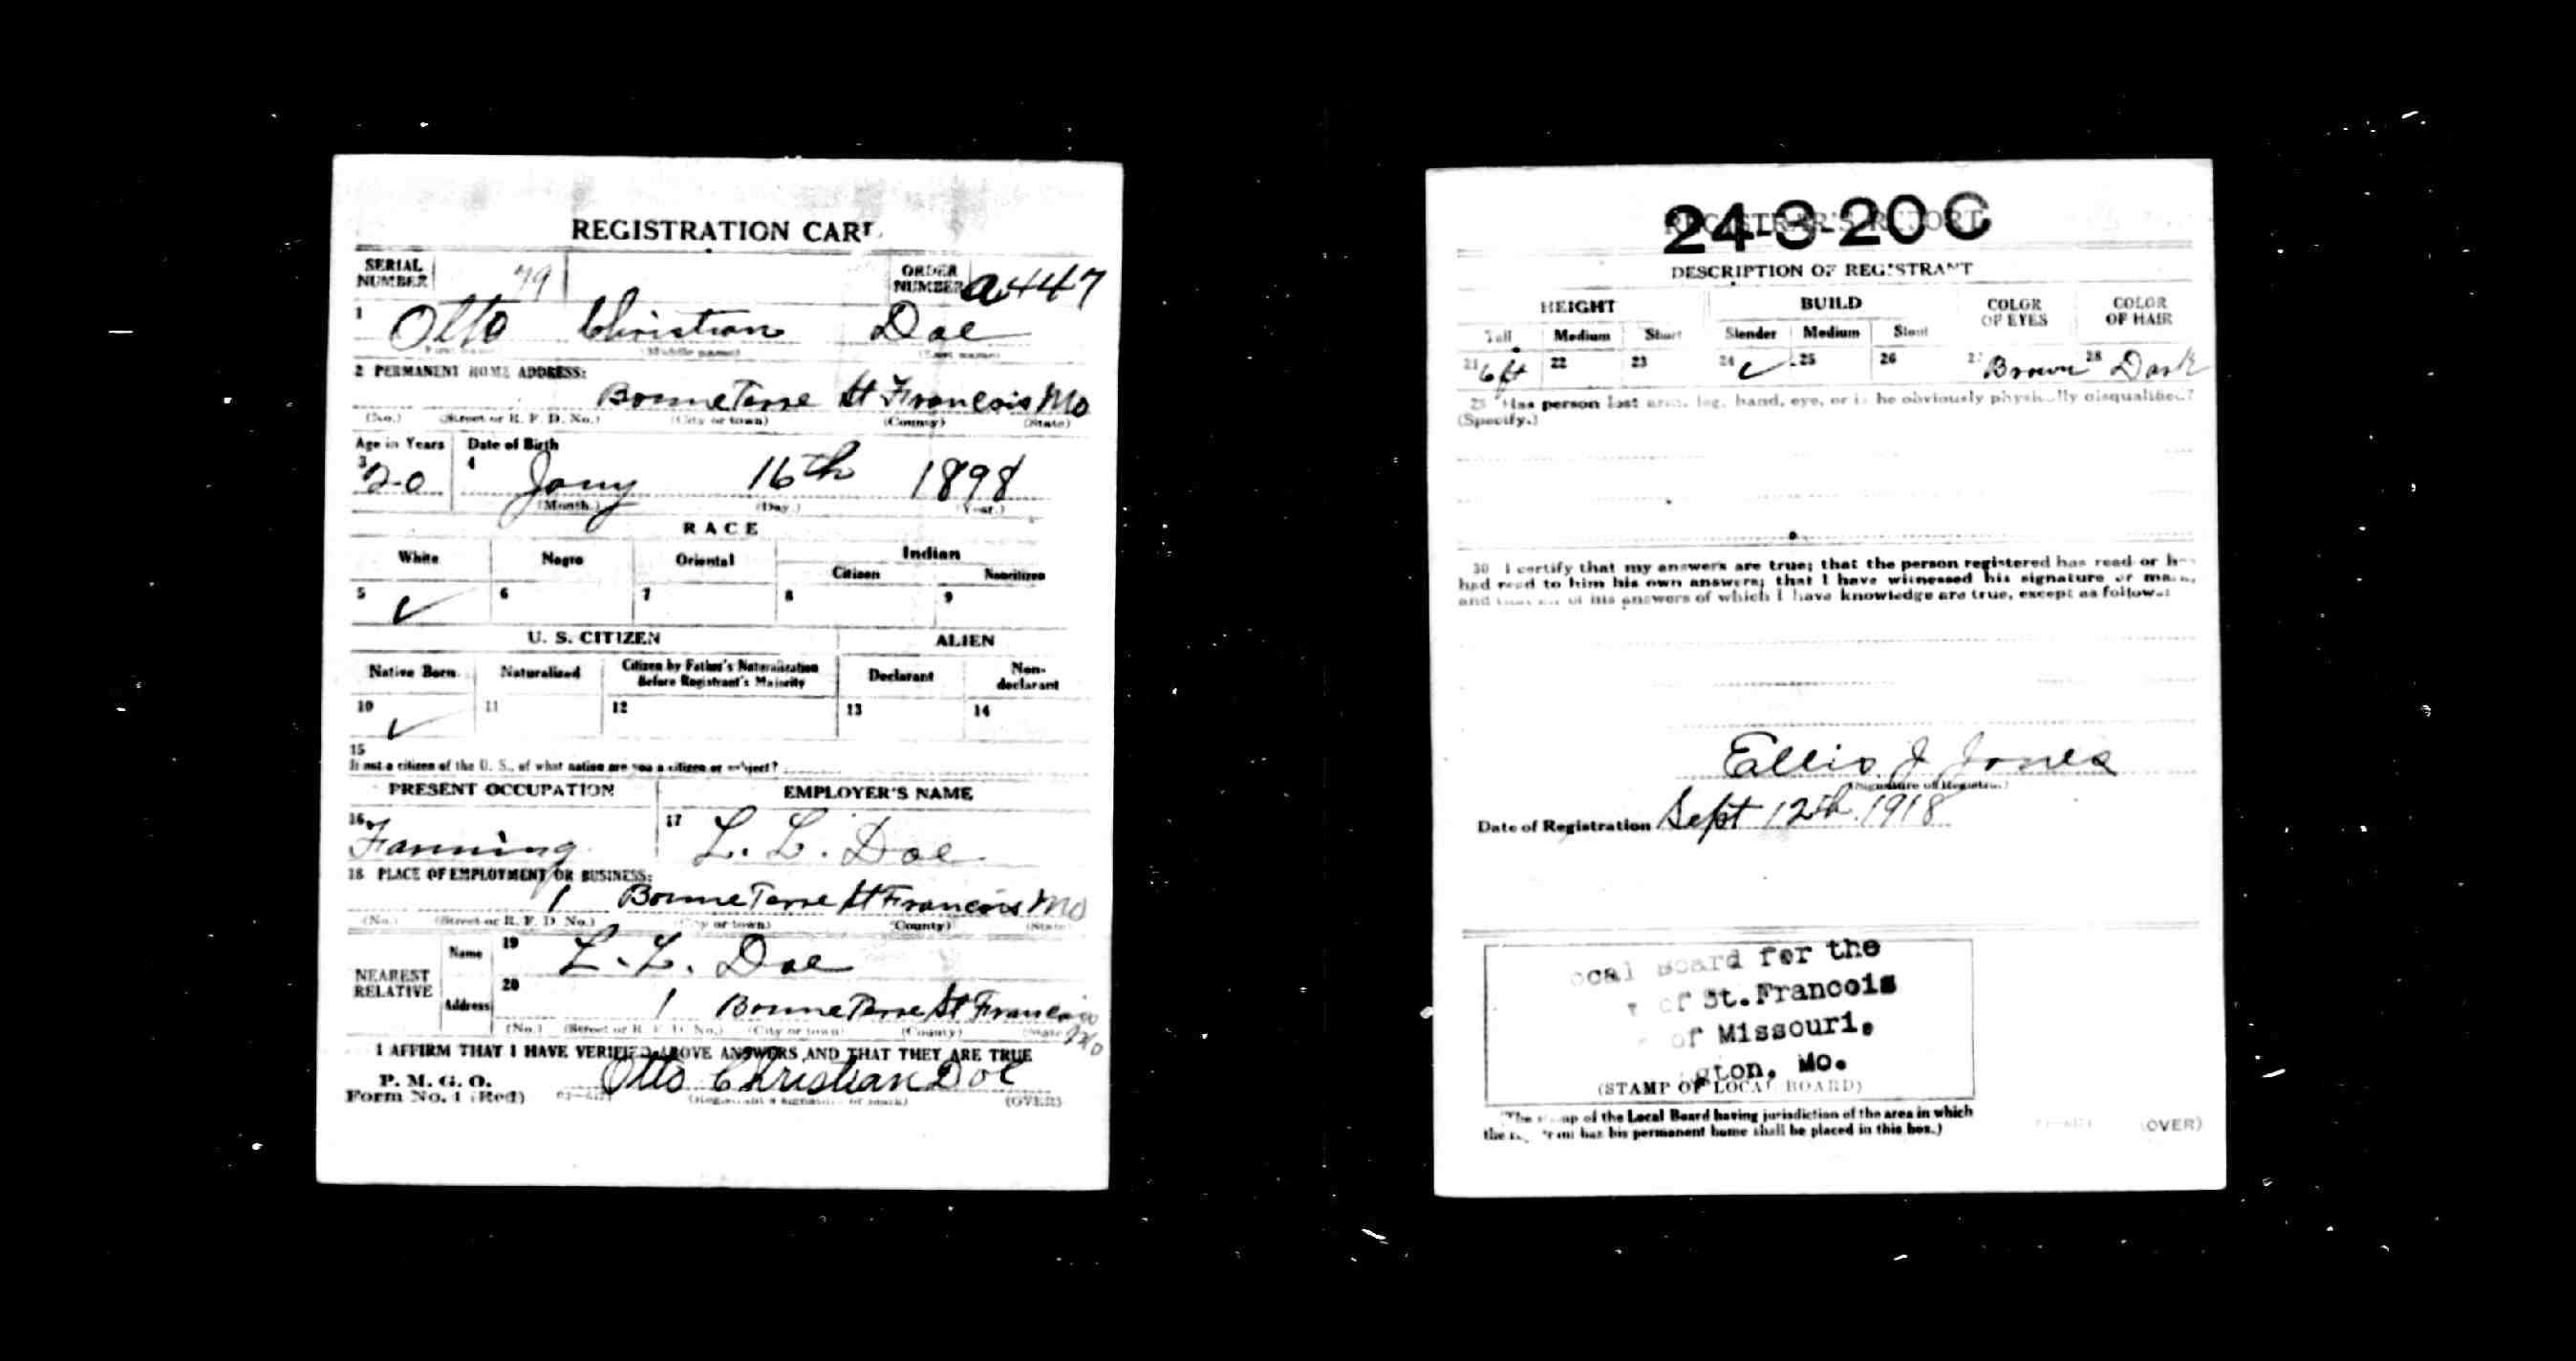 REGISTRATION CARD
SERIAL NUMBER 79 ORDER NUMBER a447
1 Otto Christian Doe
(First name) (Middle name) (Last name)
2 PERMANENT HOME ADDRESS:
Bonne Terre St Francois Mo
(No.) (Street or R. F. D. No.) (City or town) (County) (State)
Age in Years Date of Birth
3 20 4 Jany 16th 1898
(Month.) (Day.) (Year.)
RACE
White Negro Oriental Indian
Citizen Noncitizen
5 ✓ 6 7 8 9
U. S. CITIZEN ALIEN
Native Born Naturalized Citizen by Father's Naturalization Before Registrant's Majority Declarant Non-declarant
10 ✓ 11 12 13 14
15
If not a citizen of the U. S., of what nation are you a citizen or subject?
PRESENT OCCUPATION EMPLOYER'S NAME
16 Farming 17 L. L. Doe
18 PLACE OF EMPLOYMENT OR BUSINESS:
1 Bonne Terre St Francois Mo
(No.) (Street or R. F. D. No.) (City or town) (County) (State)
NEAREST RELATIVE
Name 19 L. L. Doe
Address 20 1 Bonne Terre St Francois Mo
(No.) (Street or R. F. D. No.) (City or town) (County) (State)
I AFFIRM THAT I HAVE VERIFIED ABOVE ANSWERS AND THAT THEY ARE TRUE
P. M. G. O.
Form No. 1 (Red) Otto Christian Doe
(Registrant's signature or mark) (OVER)
REGISTRAR'S REPORT
24-3-20 C
DESCRIPTION OF REGISTRANT
HEIGHT BUILD COLOR OF EYES COLOR OF HAIR
Tall Medium Short Slender Medium Stout
21 6 ft 22 23 24 ✓ 25 26 27 Brown 28 Dark
29 Has person lost arm, leg, hand, eye, or is he obviously physically disqualified?
(Specify.)
30 I certify that my answers are true; that the person registered has read or has
had read to him his own answers; that I have witnessed his signature or mark,
and that all of his answers of which I have knowledge are true, except as follows:
Ellis J Jones
(Signature of Registrar)
Date of Registration Sept 12th 1918
ocal Board for the
of St. Francois
of Missouri.
gton, Mo.
(STAMP OF LOCAL BOARD)
(The stamp of the Local Board having jurisdiction of the area in which
the registrant has his permanent home shall be placed in this box.)
(OVER)